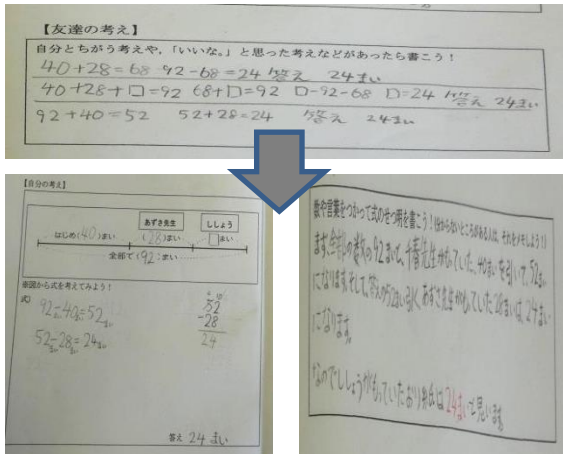 【友達の考え】
自分とちがう考えや、「いいな。」と思った考えなどがあったら書こう！
40+28=68 92-68=24 答え 24まい
40+28+□=92 68+□=92 □-92-68 □=24 答え 24まい
92+40=52 52+28=24 答え 24まい
【自分の考え】
あずき先生 ししょう
はじめ(40)まい (28)まい □まい
全部で(92)まい
※図から式を考えてみよう！
式)
92まい-40まい=52まい
52まい-28まい=24まい
52
-28
24
答え 24まい
数や言葉をつかって式のせつ明を書こう！(分からないところがある人は、それをメモしよう！)
まず、全部の数の92まいで、千春先生がもっていた、40まいを引いて、52まい
になります。そして、答えの52まい引く、あずき先生がもっていた28まいは、24まい
になります。
なのでししょうがもっていたおり紙は24まいと思います。